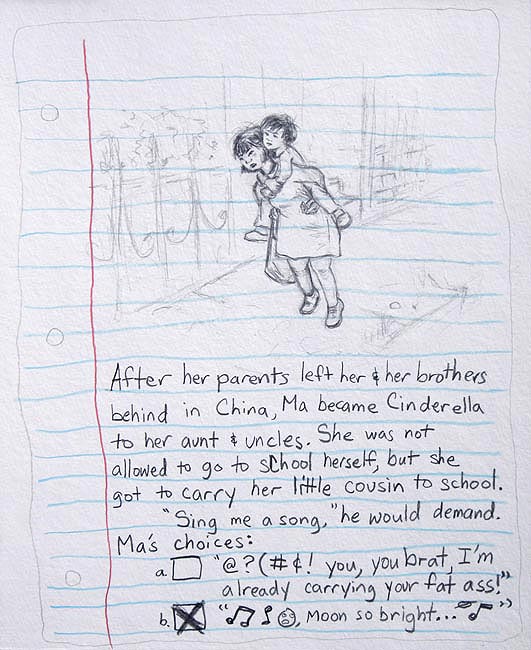 After her parents left her & her brothers
behind in China, Ma became Cinderella
to her aunt & uncles. She was not
allowed to go to school herself, but she
got to carry her little cousin to school.
"Sing me a song," he would demand.
Ma's choices:
a. "@?(#¢! you, you brat, I'm
already carrying your fat ass!"
b. "♫♪☹, Moon so bright...♪"